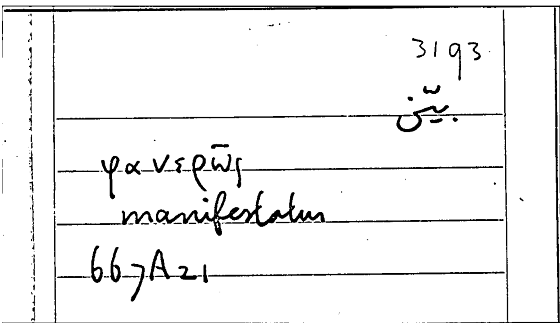 3193
بيّن
φανερῶς
manifestatur
667A21